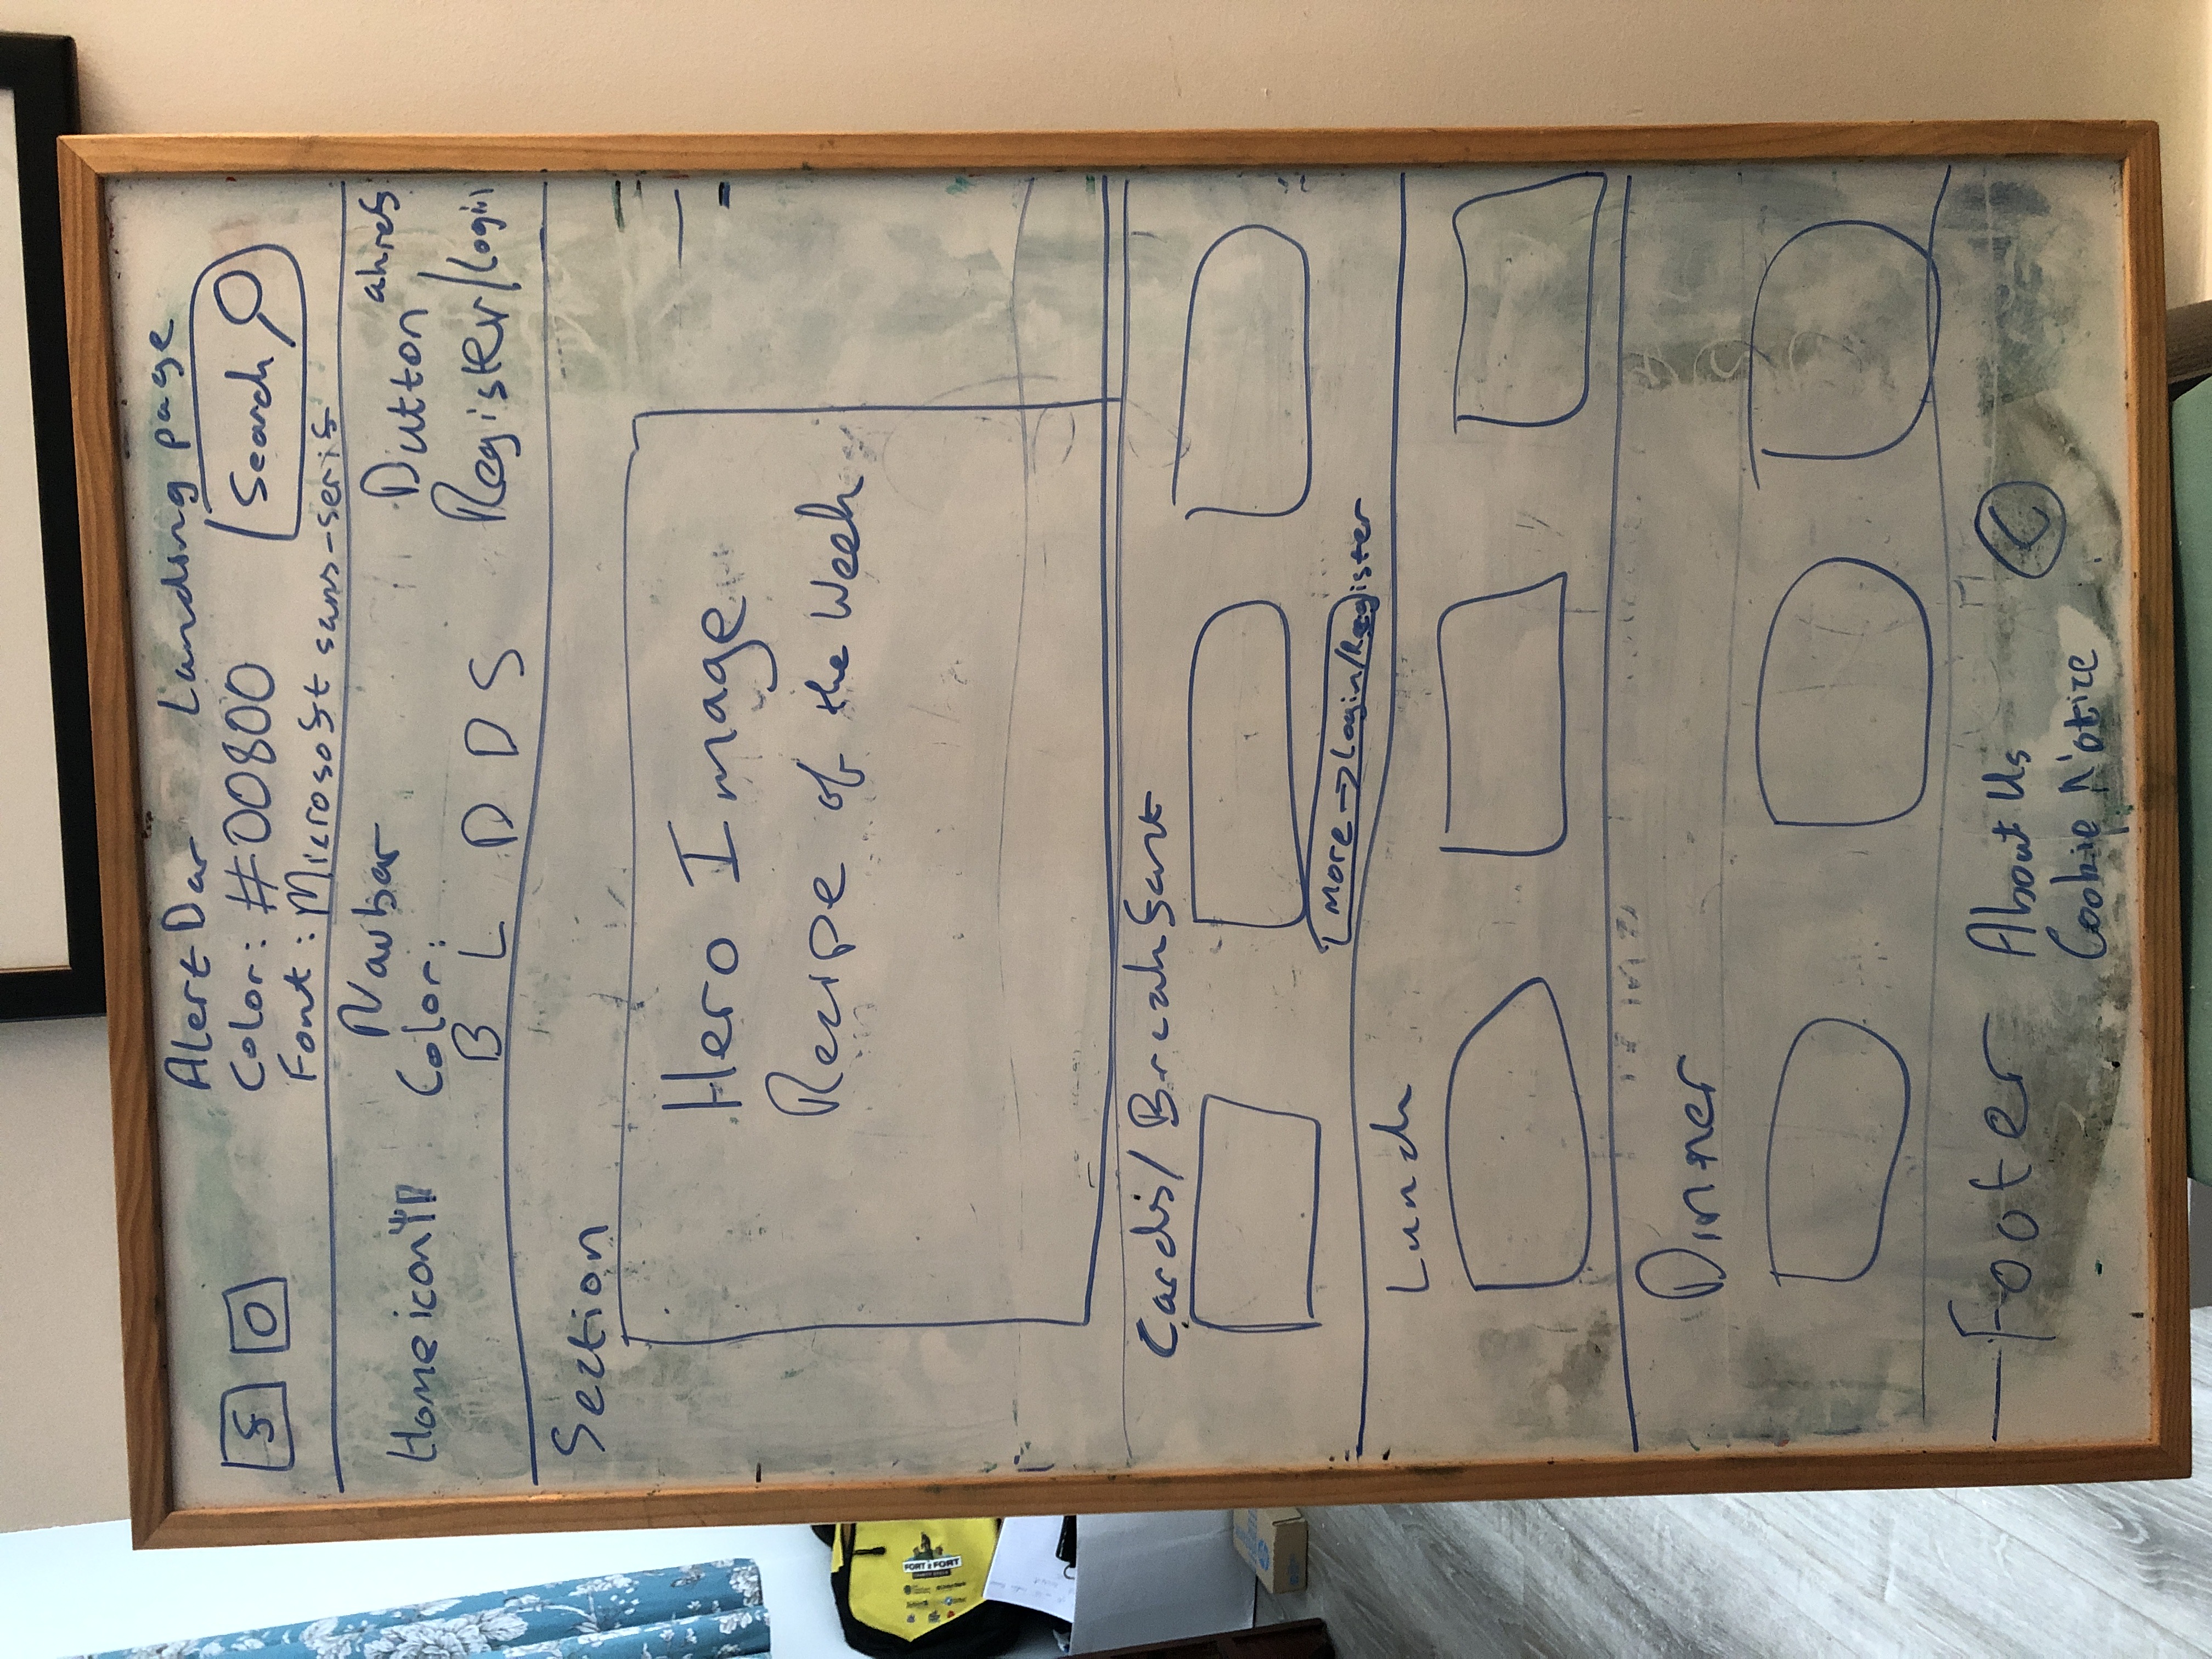 Alert Bar Landing page
f O
Color: #00800
Search
Font: Microsoft sans-serif
Navbar
Home icon
Color:
Button ahref
B L D D S
Register/Login
Section
Hero Image
Recipe of the Week
Cards/ Breakfast
More → Login/Register
Lunch
Dinner
Footer About Us ©
Cookie Notice
FORT 2 FORT